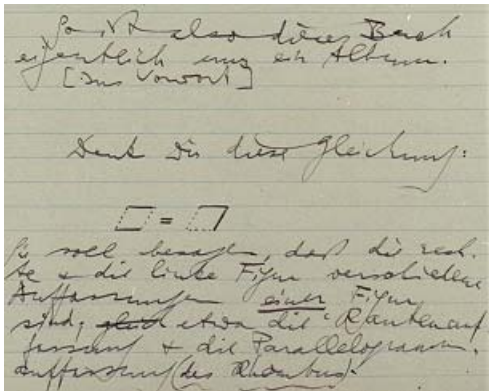 So ist also dieses Buch
eigentlich nur ein Album.
[Ins Vorwort]
Denk Dir diese Gleichung:
=
Sie soll besagen, daß die rech-
te + die linke Figur verschiedene
Auffassungen einer Figur
sind, etwa die Rautenauf
fassung + die Parallelogramm-
auffassung (des Rhombus).